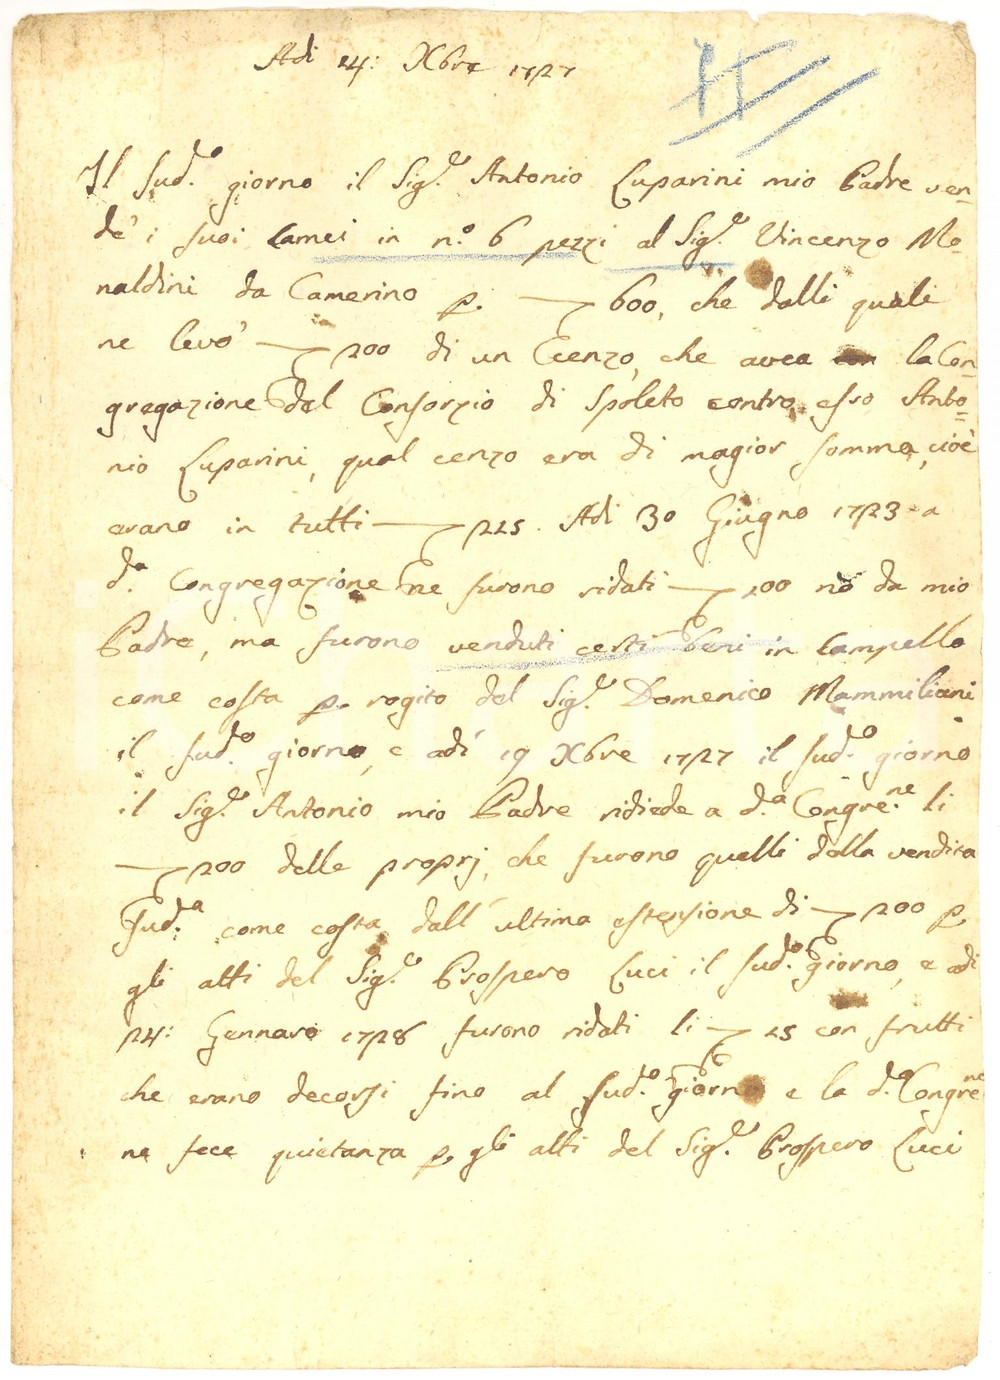 Adi 14: Xbre 1727
Il sud.o giorno il Sig.e Antonio Luparini mio Padre ven=
dè i suoi Camei in n.o 6 pezzi al Sig.e Vincenzo Mo=
naldini da Camerino p. 600, che dalli quali
ne levò 200 di un Cenzo, che avea la Con=
gregazione del Consorzio di Spoleto contro esso Anto=
nio Luparini, qual cenzo era di magior somma, cioè
erano in tutti 225. Adi 30 Giugno 1723 a
d.a Congregazione ne furono ridati 100 nò da mio
Padre, ma furono venduti certi beni in Campello
come costa p. rogito del Sig.e Domenico Mammiliani
il sud.o giorno, e adì 19 Xbre 1727 il sud.o giorno
il Sig.e Antonio mio Padre ridiede a d.a Congre.ne li
200 delle proprj, che furono quelli della vendita
sud.a come costa dall'ultima estensione di 200 p.
gli atti del Sig.e Prospero Luci il sud.o giorno, e adi
24: Gennaro 1728 furono ridati li 25 con frutti
che erano decorsi fino al sud.o giorno e la d.a Congre.ne
ne fece quietanza p. gli atti del Sig.e Prospero Luci